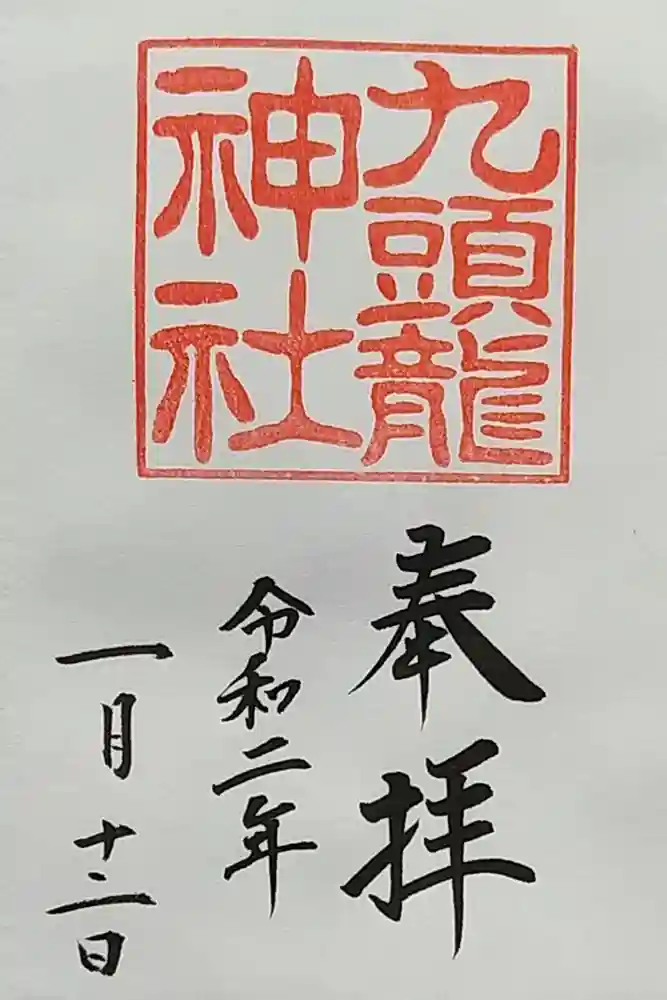 九頭龍
神社
奉拝
令和二年
一月十二日